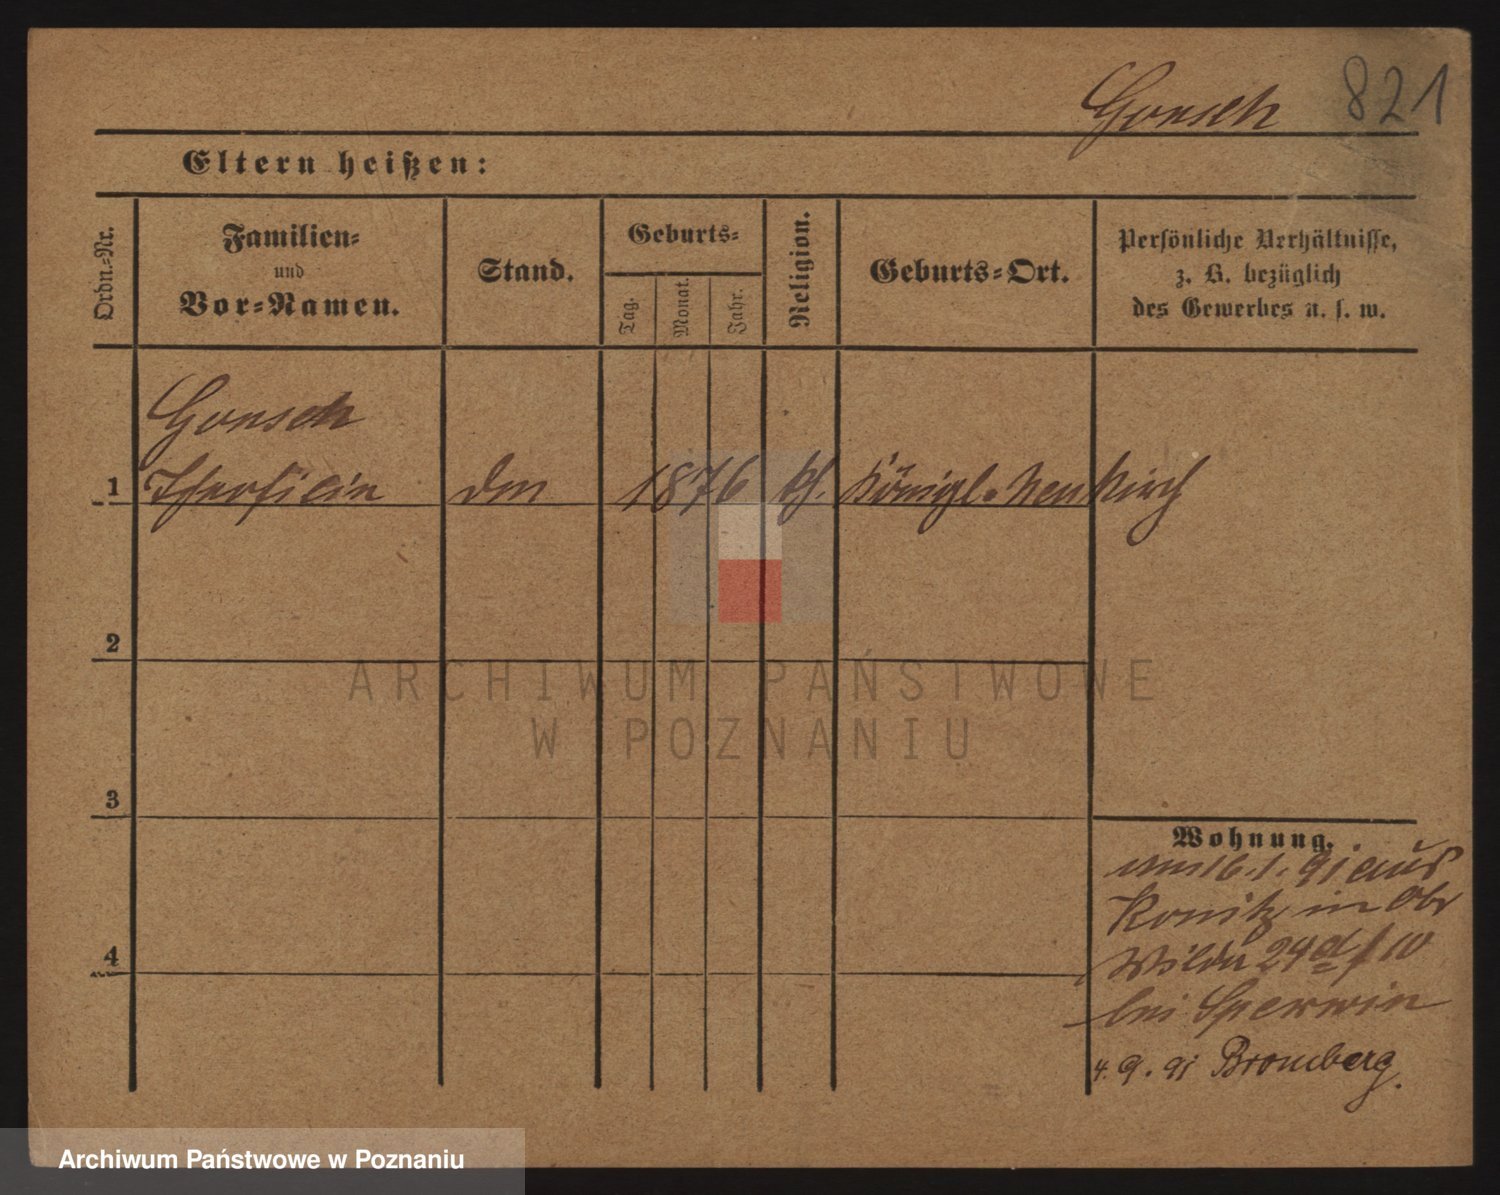 Gonsch 821
Eltern heißen:
Ordn.-Nr.
Familien-
und
Vor-Namen.
Stand.
Geburts-
Tag.
Monat.
Jahr.
Religion.
Geburts-Ort.
Persönliche Verhältnisse,
z. B. bezüglich
des Gewerbes u. s. w.
Gonsch
1 1876 kf. Königl. Neukirch
2
3
4
Wohnung.
am 16.1.91 aus
Konitz in Ob
Wilda 24
bei Sperwin
4. 9. 91 Bromberg.
ARCHIWUM PAŃSTWOWE
W POZNANIU
Archiwum Państwowe w Poznaniu